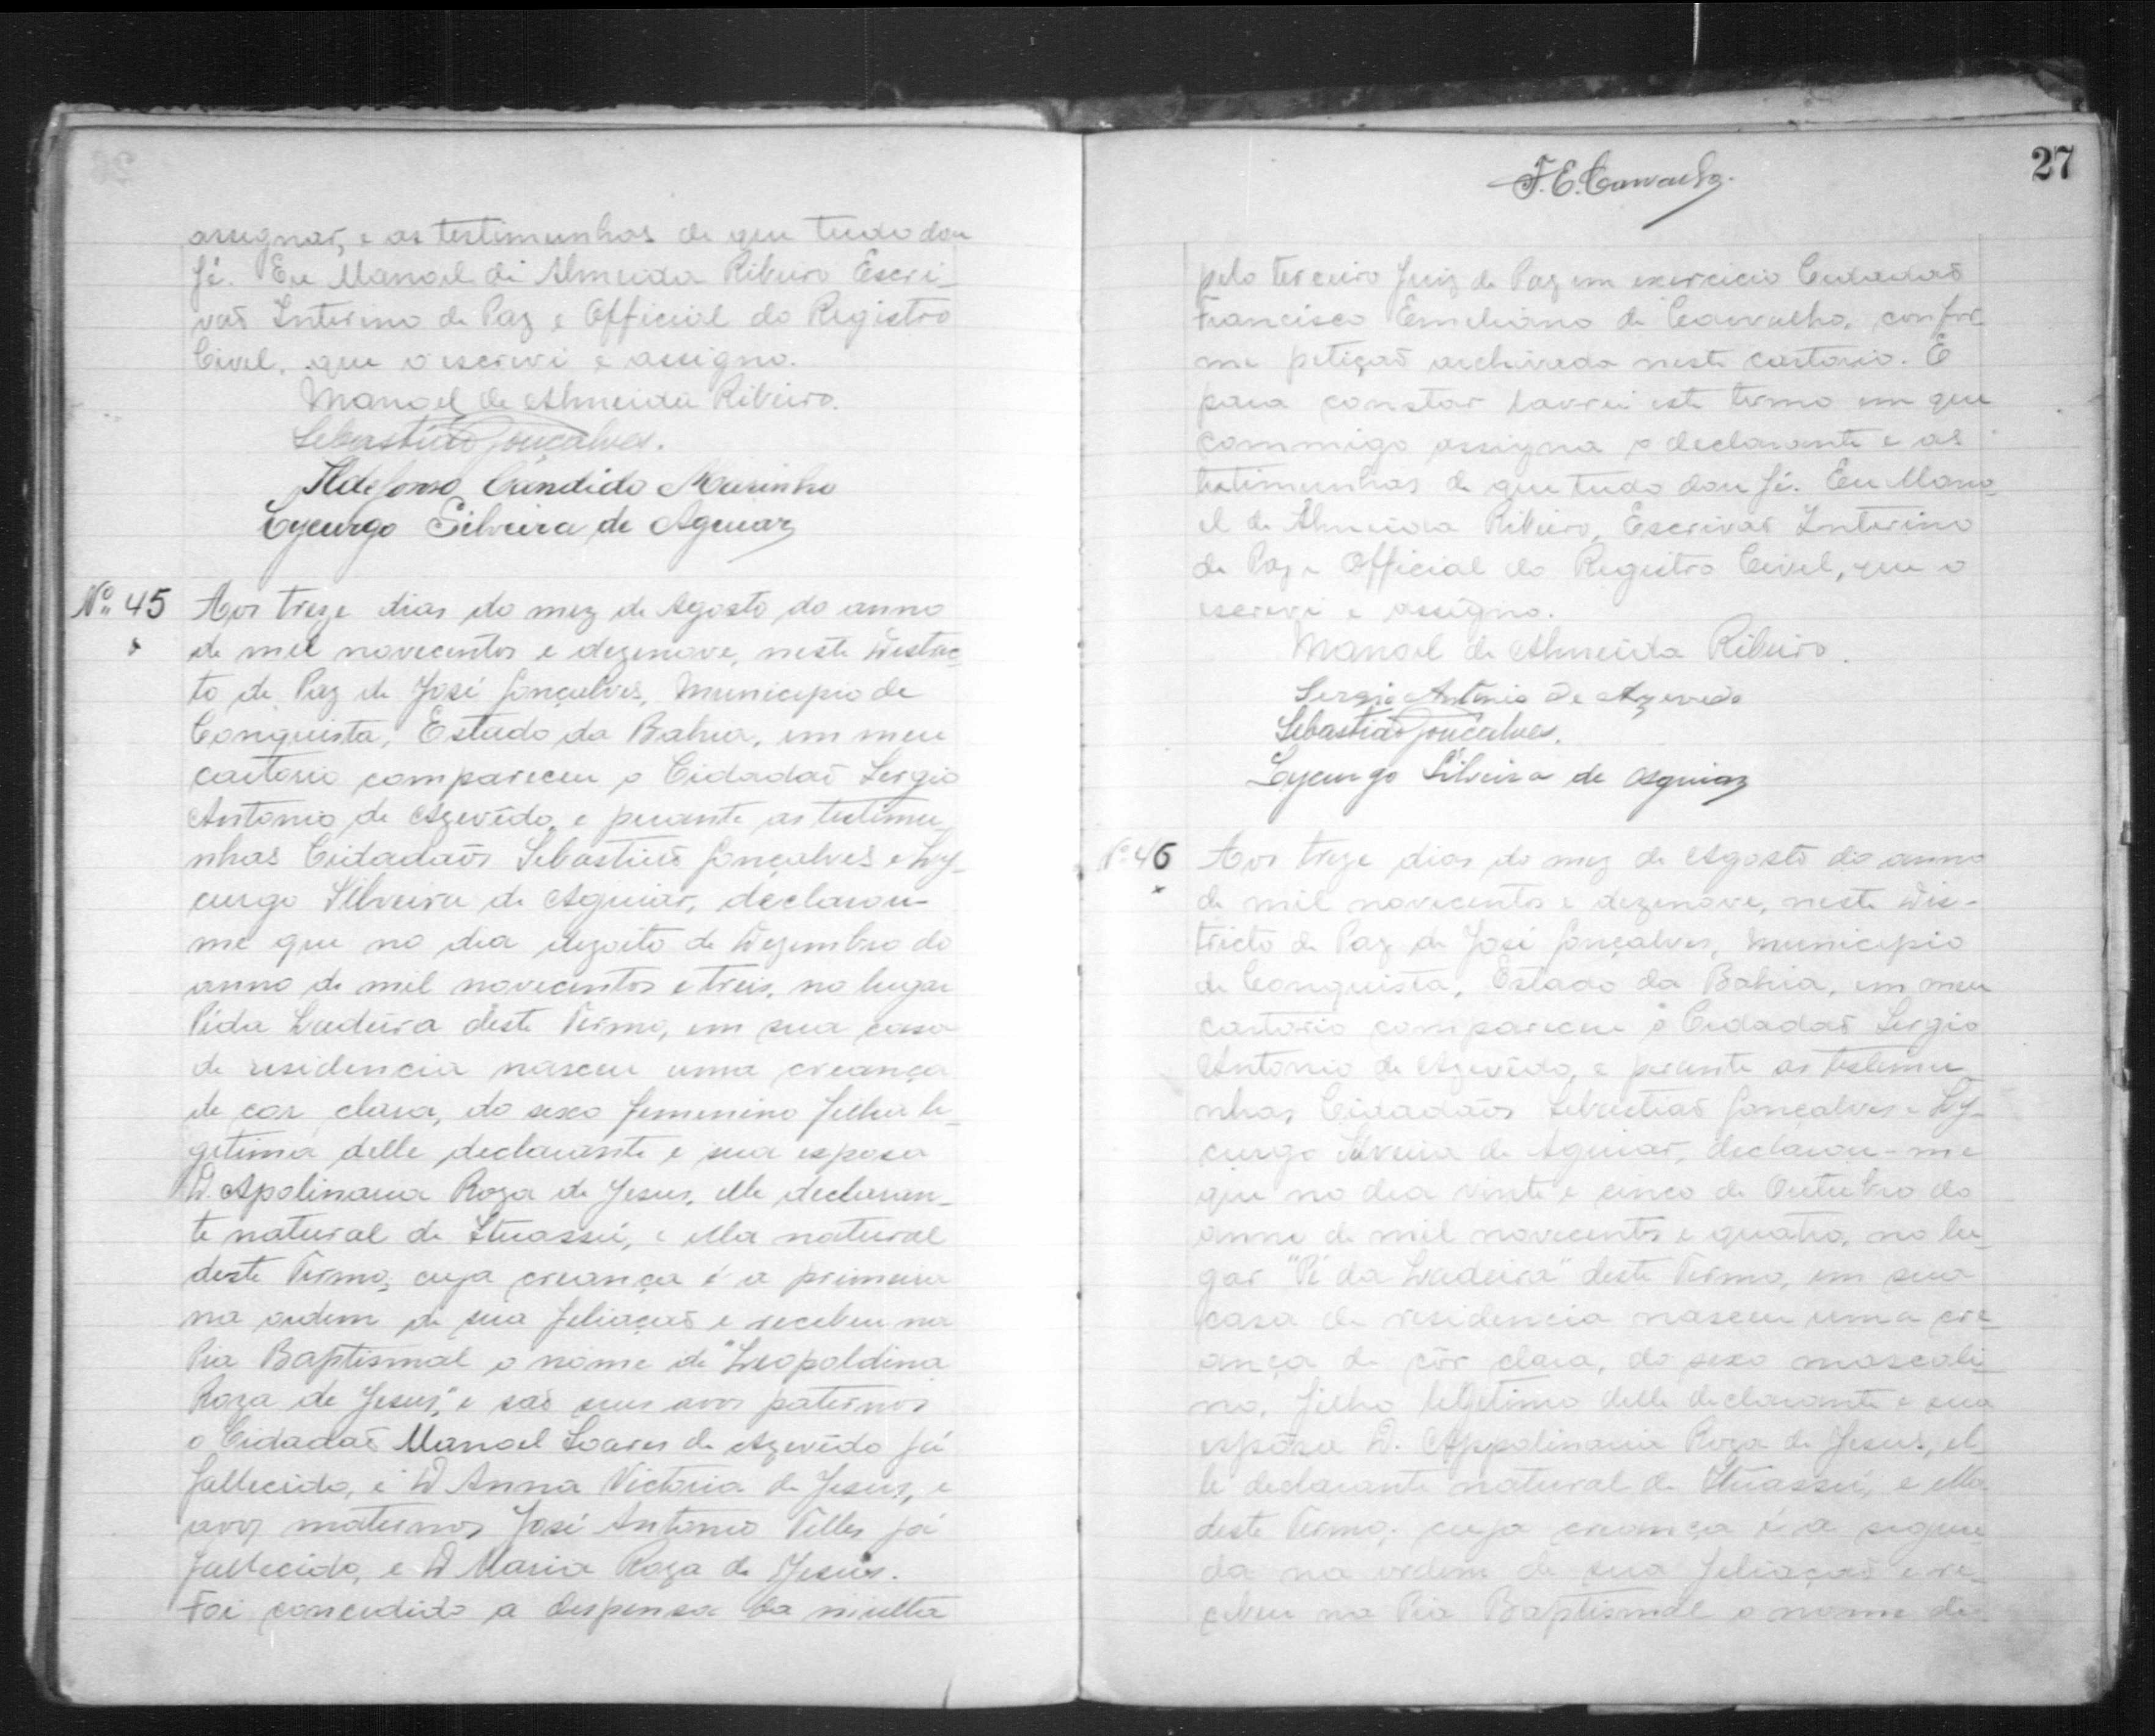 assignar, e as testimunhas de que tudo dou
fé. Eu Manoel de Almeida Ribeiro Escri-
vaõ Interino de Paz e Official do Registro
Civel, que o escrevi e assigno.
Manoel de Almeida Ribeiro.
Sebastião Gonçalves.
Ildefonso Cândido Marinho
Lycurgo Silveira de Aguiar
Nº 45 Aos treze dias do mez de Agosto do anno
de mil novecentos e dezenove, neste Distric-
to de Paz de José Gonçalves, Municipio de
Conquista, Estado da Bahia, em meu
cartorio compareceu o Cidadaõ Sergio
Antonio de Azevêdo, e perante as testimu-
nhas Cidadaõs Sebastiaõ Gonçalves e Ly-
curgo Silveira de Aguiar, declarou-
me que no dia dezoito de Dezembro do
anno de mil novecentos e treis, no lugar
Pé da Ladeira deste Termo, em sua casa
de residencia nasceu uma creança
de cor clara, do sexo femenino filha le-
getima delle declarante e sua esposa
D. Apolinaria Roza de Jesus, elle declaran-
te natural de Ituassú, e ella natural
deste Termo, cuja creança é a primeira
na ordem de sua feliaçaõ e recebeu na
Pia Baptismal o nome de "Leopoldina
Roza de Jesus", e saõ seus avos paternos
o Cidadaõ Manoel Soares de Azevêdo já
fallecido, e D Anna Victoria de Jesus, e
avos maternos José Antonio Telles já
fallecido, e D Maria Roza de Jesus.
Foi concedido a despensa da multa
27
F. E. Carvalho.
pelo terceiro Juiz de Paz em exercicio Cidadaõ
Francisco Emeliano de Carvalho, confor-
me petiçaõ archivada neste cartorio. E
para constar lavrei este termo em que
commigo assigna o declarante e as
testimunhas de que tudo dou fé. Eu Mano-
el de Almeida Ribeiro, Escrivaõ Interino
de Paz e Official do Registro Civel, que o
escrevi e assigno.
Manoel de Almeida Ribeiro.
Sergio Antonio de Azevedo
Sebastião Gonçalves.
Lycurgo Silveira de Aguiar
Nº 46 Aos treze dias do mez de Agosto do anno
de mil novecentos e dezenove, neste Dis-
tricto de Paz de José Gonçalves, Municipio
de Conquista, Estado da Bahia, em meu
cartorio compareceu o Cidadaõ Sergio
Antonio de Azevêdo, e perante as testemu-
nhas Cidadaõs Sebastiaõ Gonçalves e Ly-
curgo Silveira de Aguiar, declarou-me
que no dia vinte e cinco de Outubro do
anno de mil novecentos e quatro, no lu-
gar "Pé da Ladeira" deste Termo, em sua
casa de residencia nasceu uma cre-
ança de côr clara, do sexo masculi-
no, filho legetimo delle declarante e sua
espôsa D. Appolinaria Roza de Jesus, el-
le declarante natural de Ituassú, e ella
deste Termo, cuja creança é a segun-
da na ordem de sua feliaçaõ e re-
cebeu na Pia Baptismal o nome de